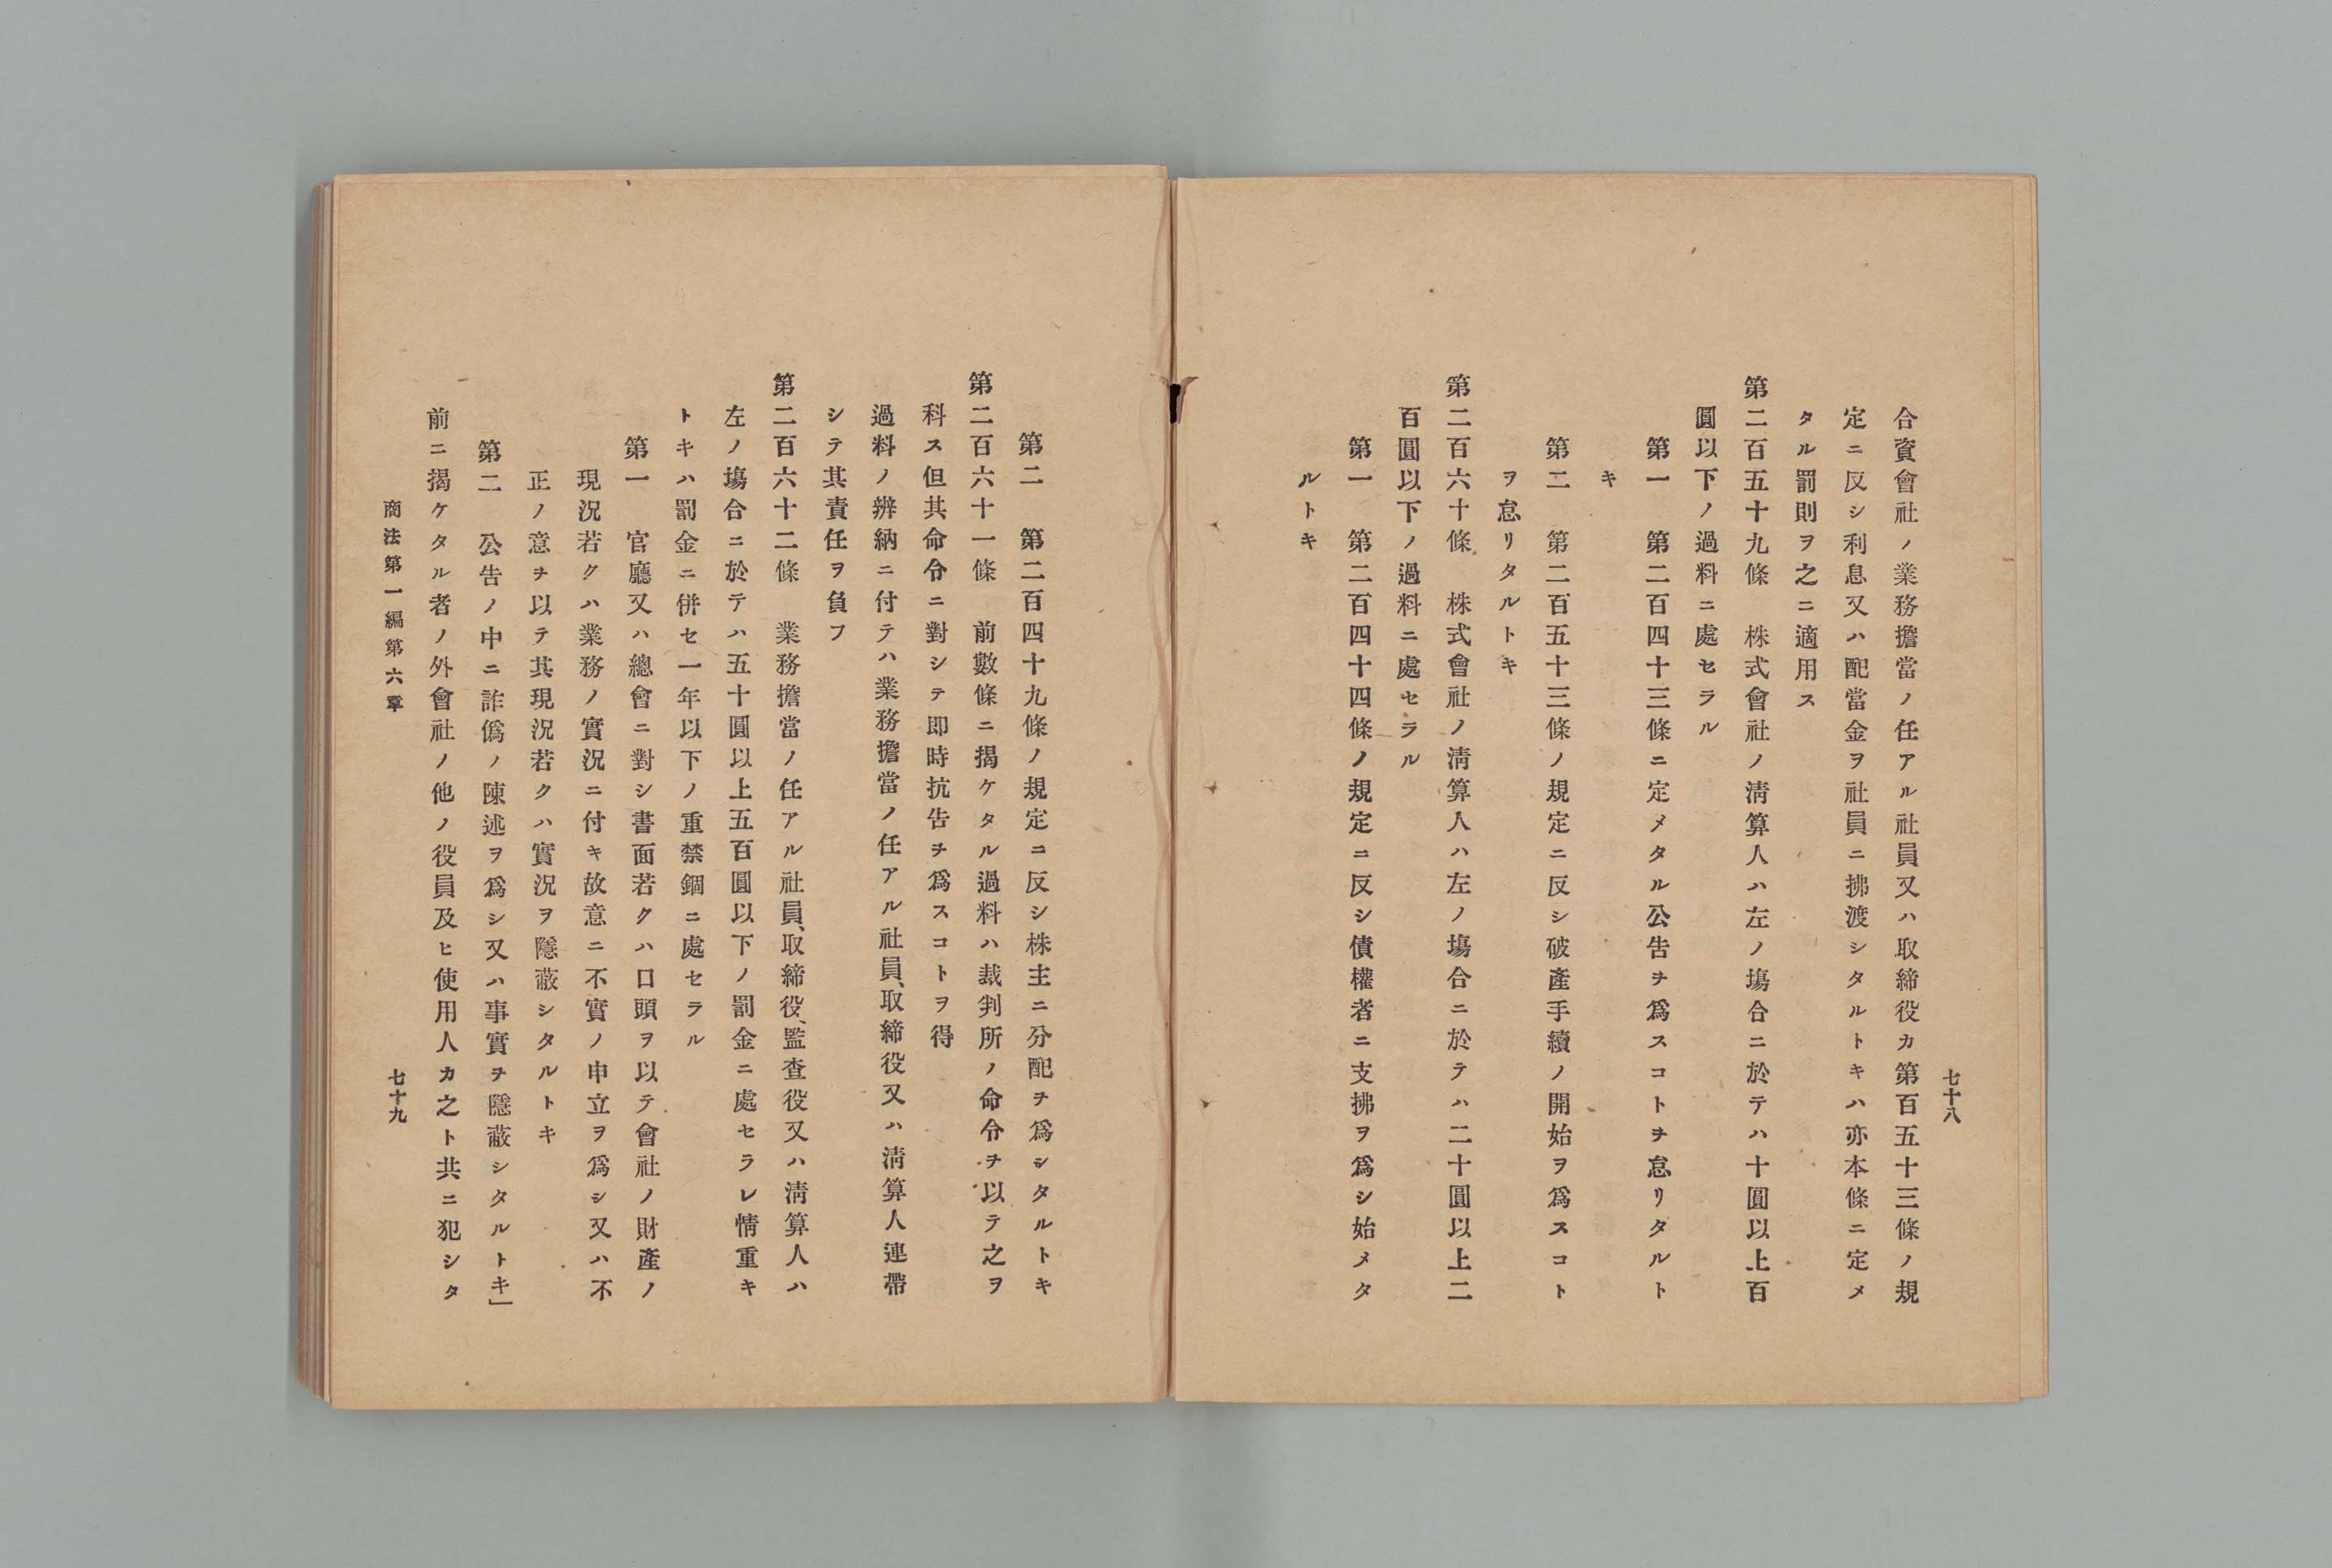 七十八
合資會社ノ業務擔當ノ任アル社員又ハ取締役カ第百五十三條ノ規
定ニ反シ利息又ハ配當金ヲ社員ニ拂渡シタルトキハ亦本條ニ定メ
タル罰則ヲ之ニ適用ス
第二百五十九條　株式會社ノ淸算人ハ左ノ塲合ニ於テハ十圓以上百
圓以下ノ過料ニ處セラル
第一　第二百四十三條ニ定メタル公告ヲ爲スコトヲ怠リタルト
キ
第二　第二百五十三條ノ規定ニ反シ破產手續ノ開始ヲ爲スコト
ヲ怠リタルトキ
第二百六十條　株式會社ノ淸算人ハ左ノ塲合ニ於テハ二十圓以上二
百圓以下ノ過料ニ處セラル
第一　第二百四十四條ノ規定ニ反シ債權者ニ支拂ヲ爲シ始メタ
ルトキ
第二　第二百四十九條ノ規定ニ反シ株主ニ分配ヲ爲シタルトキ
第二百六十一條　前數條ニ揭ケタル過料ハ裁判所ノ命令ヲ以テ之ヲ
科ス但其命令ニ對シテ即時抗告ヲ爲スコトヲ得
過料ノ辨納ニ付テハ業務擔當ノ任アル社員、取締役又ハ淸算人連帶
シテ其責任ヲ負フ
第二百六十二條　業務擔當ノ任アル社員、取締役、監査役又ハ淸算人ハ
左ノ塲合ニ於テハ五十圓以上五百圓以下ノ罰金ニ處セラレ情重キ
トキハ罰金ニ併セ一年以下ノ重禁錮ニ處セラル
第一　官廳又ハ總會ニ對シ書面若クハ口頭ヲ以テ會社ノ財產ノ
現況若クハ業務ノ實況ニ付キ故意ニ不實ノ申立ヲ爲シ又ハ不
正ノ意ヲ以テ其現況若クハ實況ヲ隱蔽シタルトキ
第二　公告ノ中ニ詐僞ノ陳述ヲ爲シ又ハ事實ヲ隱蔽シタルトキ」
前ニ揭ケタル者ノ外會社ノ他ノ役員及ヒ使用人カ之ト共ニ犯シタ
商法第一編第六章
七十九